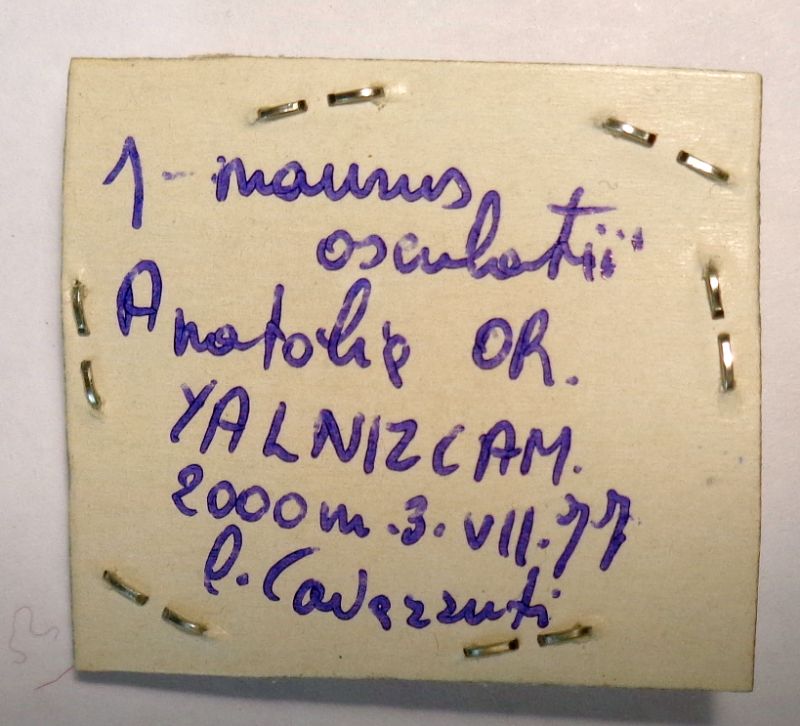 1- maurus
osculatii
Anatolia OR.
YALNIZCAM.
2000m.3.VII.77
P. Cavazzuti